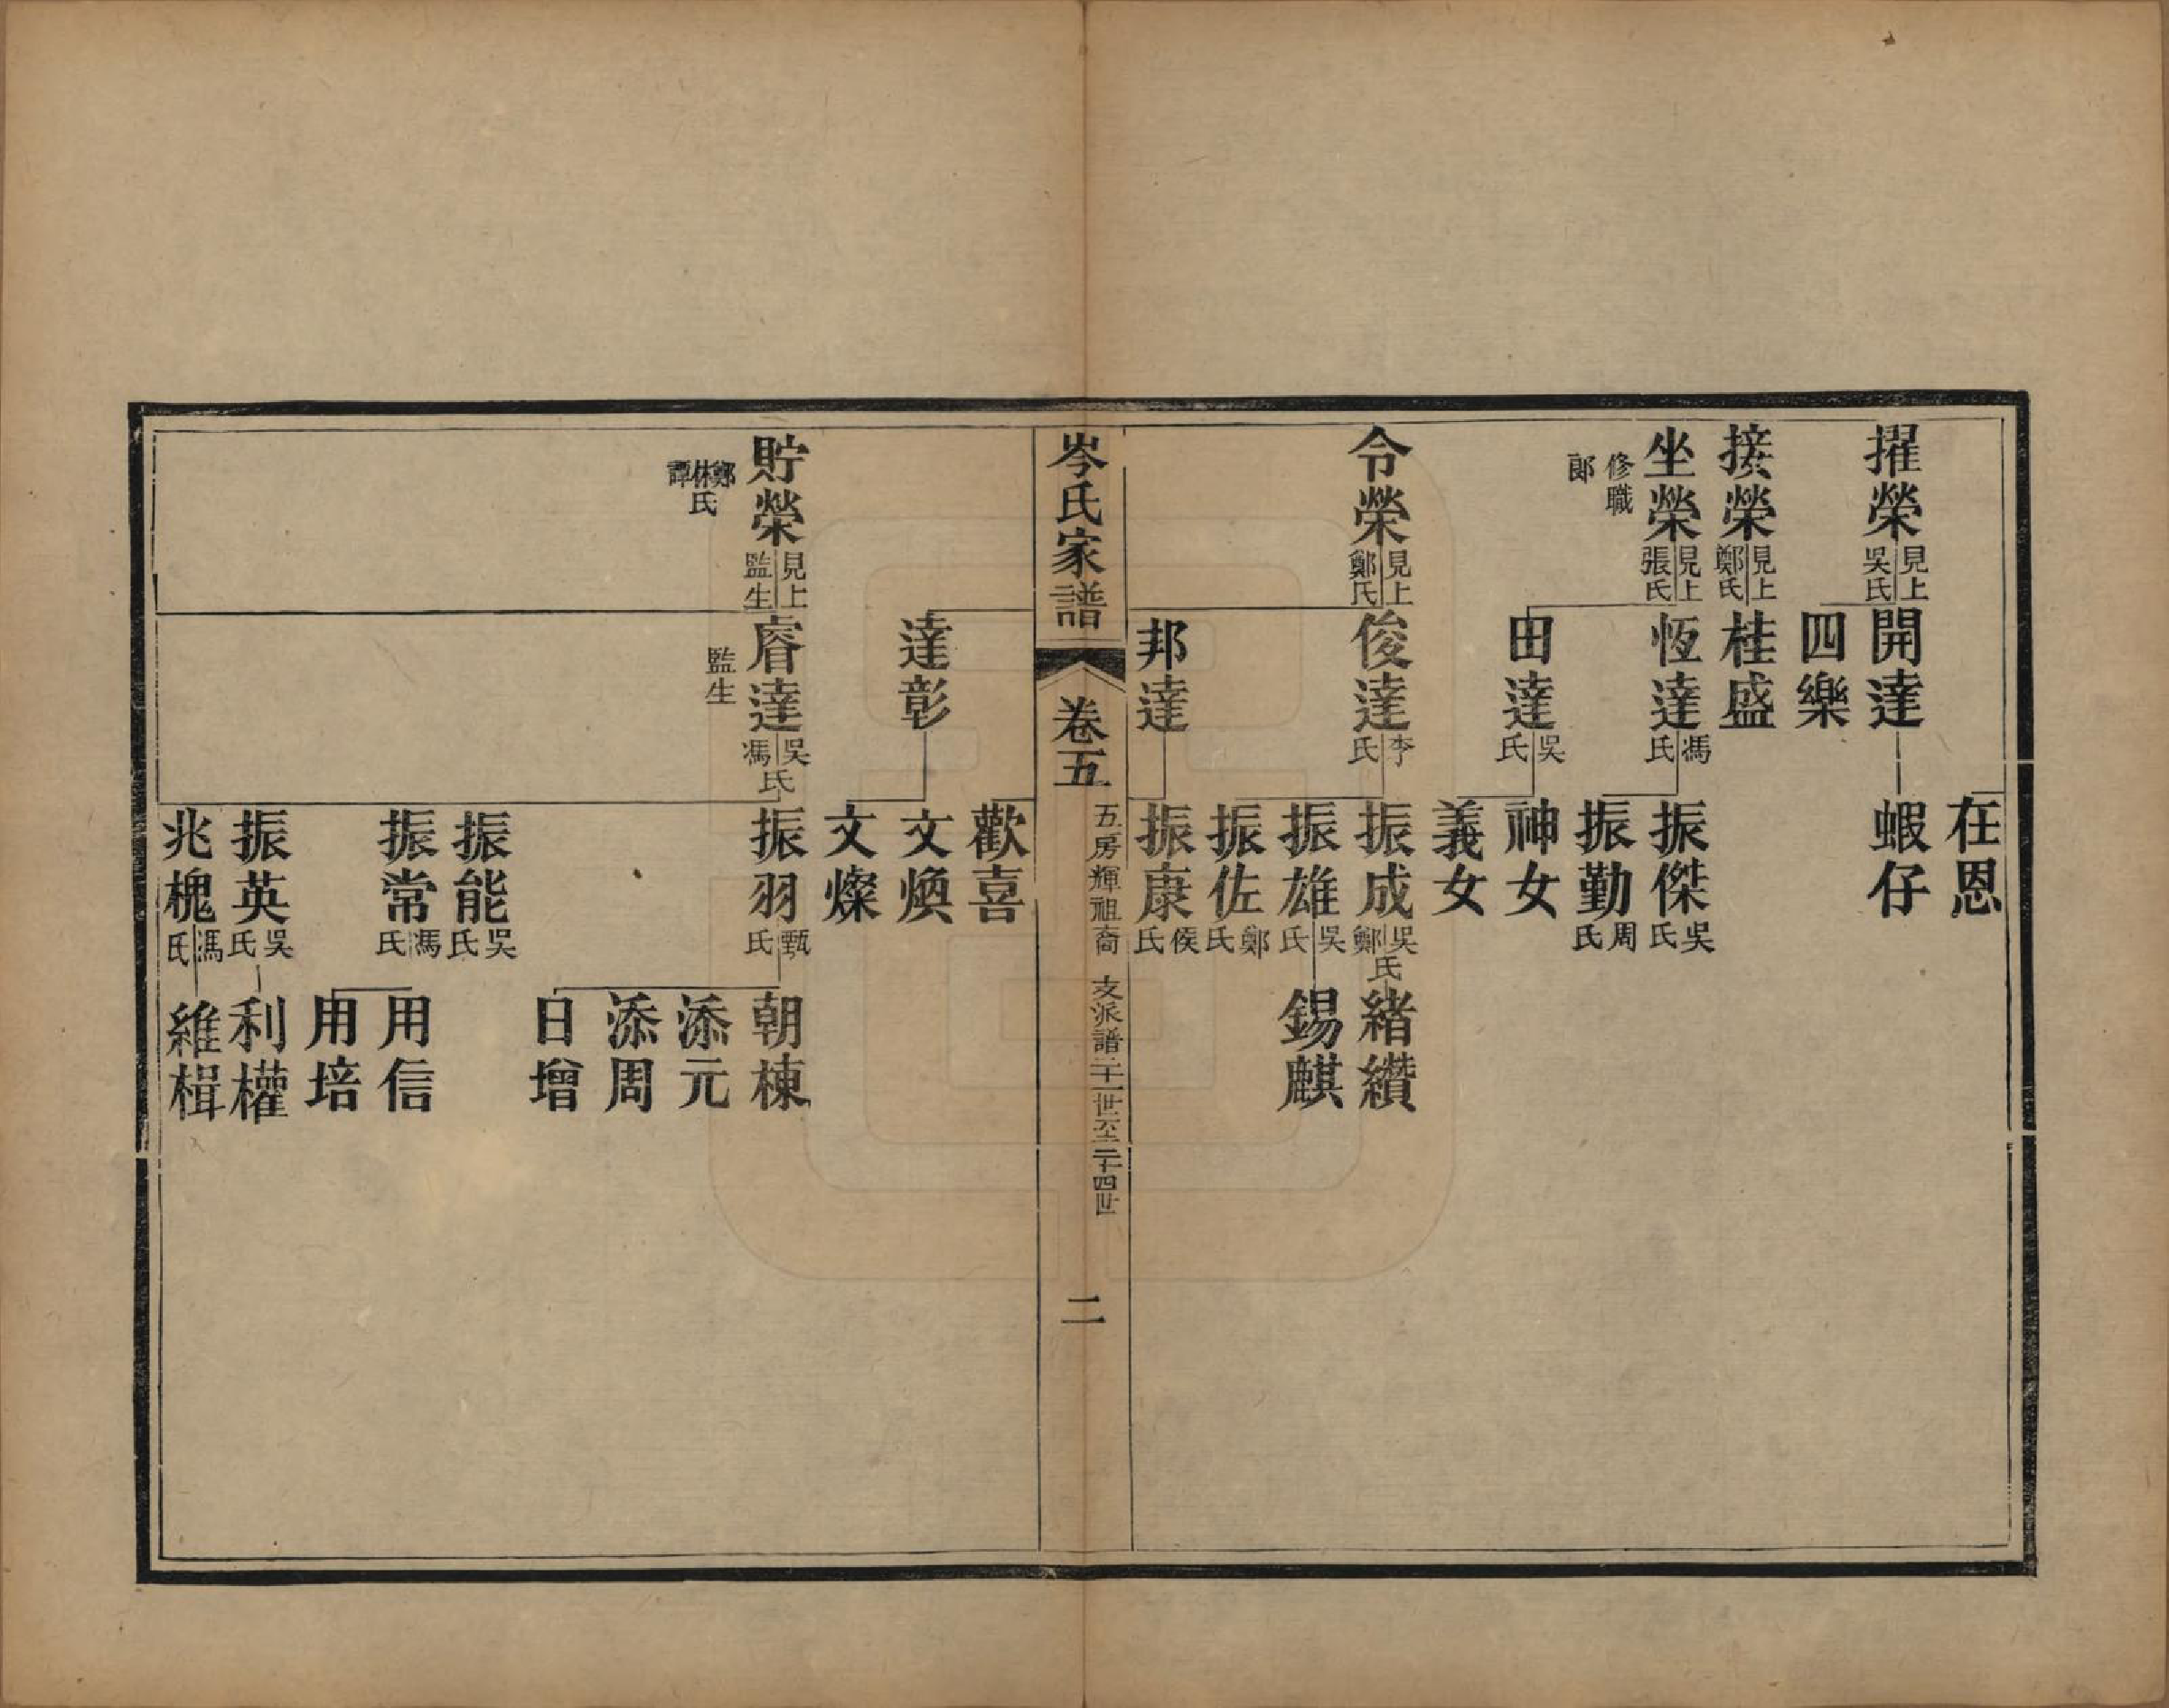 在恩
擢榮 見上 吳氏 開達 蝦仔
四樂
接榮 見上 鄭氏 桂盛
坐榮 見上 張氏 恆達 馮氏 振傑 吳氏
修職郎
振勤 周氏
田達 吳氏 神女
義女
令榮 見上 鄭氏 俊達 李氏 振成 吳鄭氏 緒纘
振雄 吳氏 錫麒
振佐 鄭氏
邦達 振康 侯氏
岑氏家譜 卷五 五房輝祖裔 支派譜二十一世至二十四世 二
歡喜
達彰 文煥
文燦
貯榮 見上 監生 睿達 吳馮氏 振羽 甄氏 朝棟
鄭林譚氏
監生
添元
添周
日增
振能 吳氏
振常 馮氏 用信
用培
振英 吳氏 利權
兆槐 馮氏 維楫